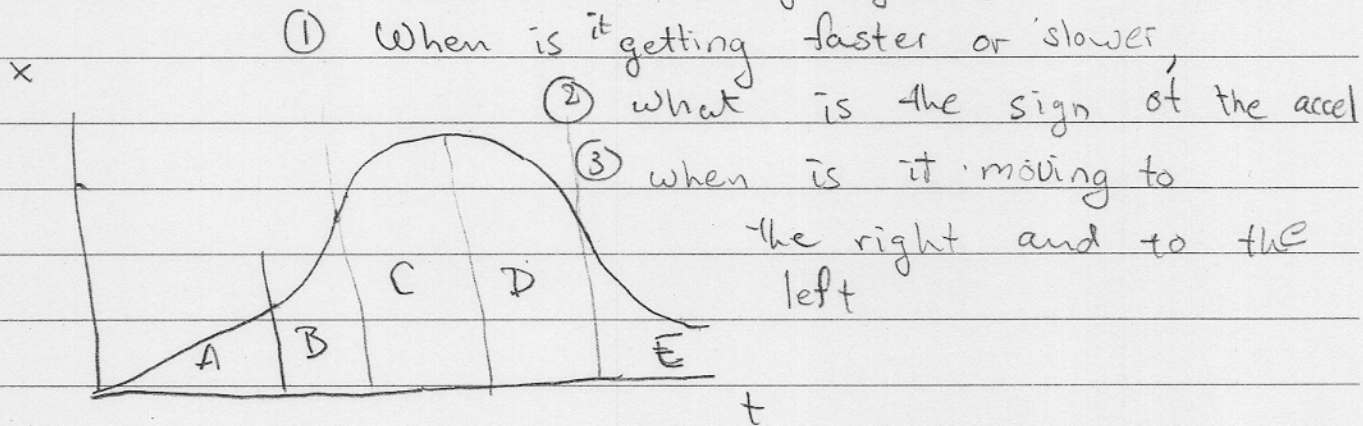 ① When is it getting faster or slower,
x
② what is the sign of the accel
③ when is it moving to
the right and to the
left
C D
A B E
t